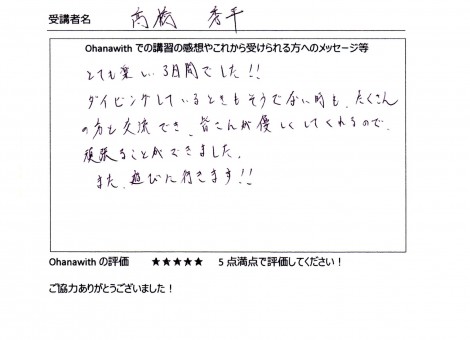 受講者名 高橋 秀平
Ohanawith での講習の感想やこれから受けられる方へのメッセージ等
とても楽しい3日間でした!!
ダイビングしているときもそうでない時も、たくさん
の方と交流でき、皆さんが優しくしてくれるので、
頑張ることができました。
また、遊びに行きます!!
Ohanawith の評価 ★★★★★ 5 点満点で評価してください!
ご協力ありがとうございました!